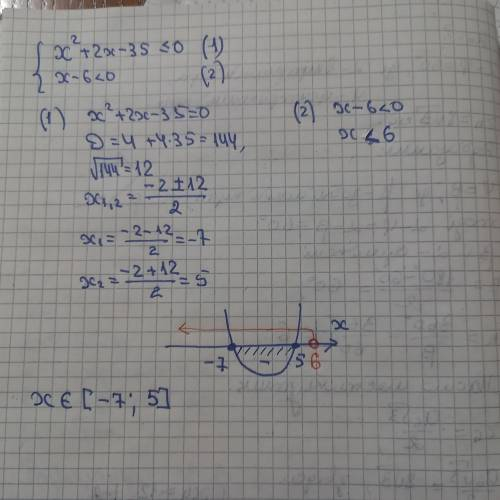 { x²+2x-35 ≤0 (1)
x-6<0 (2)
(1) x²+2x-35=0
D=4+4·35=144,
√144=12
x₁,₂= (-2±12)/2
x₁= (-2-12)/2 =-7
x₂= (-2+12)/2 =5
(2) x-6<0
x<6
x
-7 - 5 6
x∈[-7; 5]